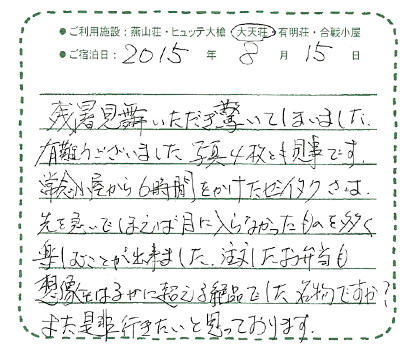 ●ご利用施設：燕山荘・ヒュッテ大槍・大天荘・有明荘・合戦小屋
●ご宿泊日：2015年8月15日
残暑見舞いただき驚いてしまいました。
有難うございました 写真4枚とも見事です。
常念小屋から6時間をかけたゼイタクさは、
先を急いでしまえば目に入らなかったものを多く
楽しむことが出来ました。注文したお弁当も
想像をはるかに超える絶品でした 名物ですか？
また是非行きたいと思っております。